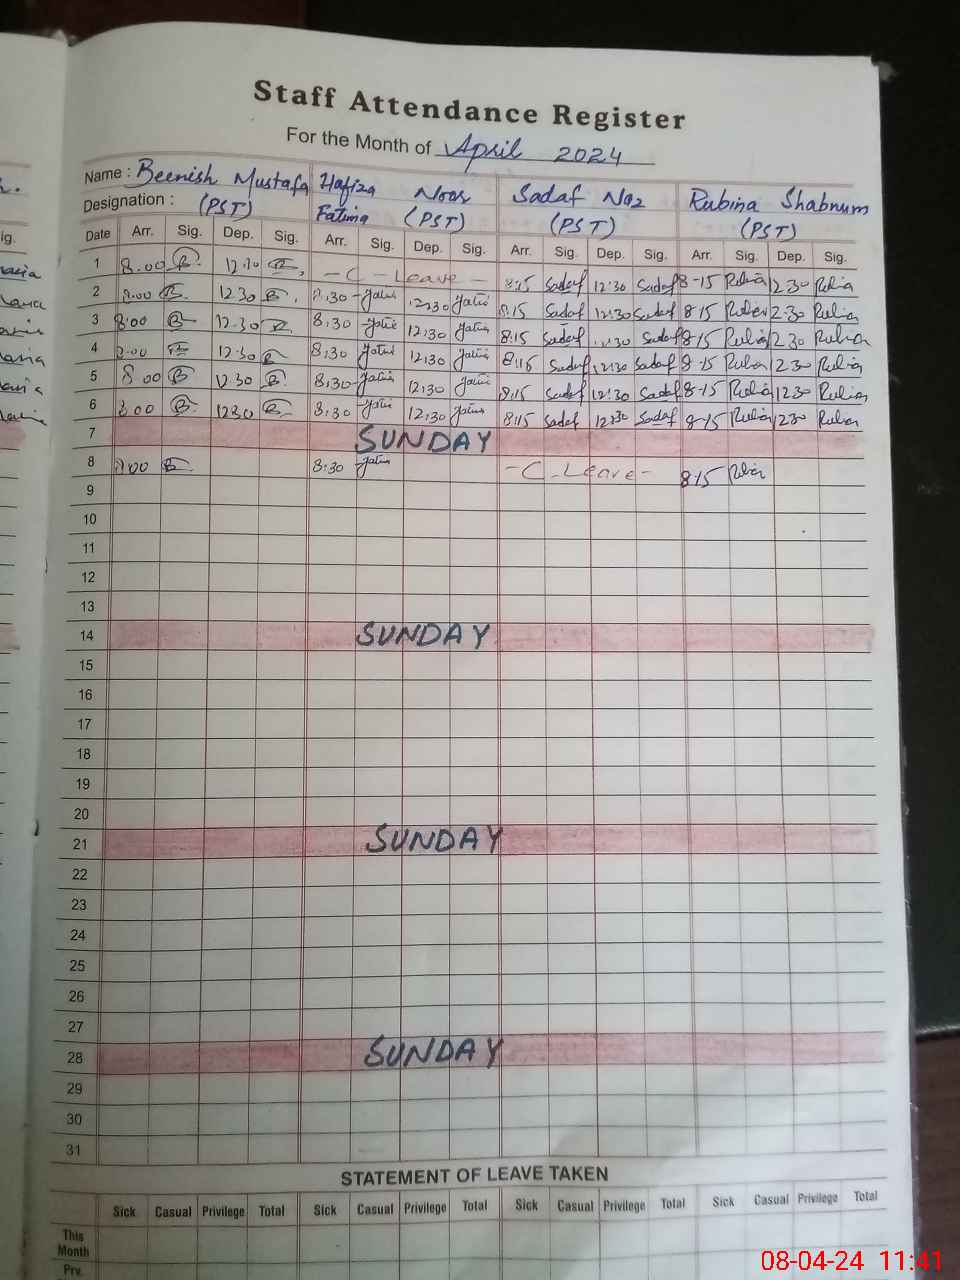 Staff Attendance Register
For the Month of April 2024
Name : Beenish Mustafa Hafiza Noor Sadaf Naz Rubina Shabnum
Designation : (PST) Fatima (PST) (PST) (PST)
Date Arr. Sig. Dep. Sig. Arr. Sig. Dep. Sig. Arr. Sig. Dep. Sig. Arr. Sig. Dep. Sig.
1 8.00 B 12.30 B - C - Leave - 8:15 Sadaf 12:30 Sadaf 8-15 Rubina 12 30 Rubina
2 8.00 B 12 30 B 8.30 Fatima 12:30 Fatima 8:15 Sadaf 12:30 Sadaf 8-15 Rubina 12-30 Rubina
3 8:00 B 12.30 B 8:30 Fatima 12:30 Fatima 8:15 Sadaf 12:30 Sadaf 8-15 Rubina 12 30 Rubina
4 8.00 B 12.30 B 8:30 Fatima 12:30 Fatima 8:15 Sadaf 12:30 Sadaf 8-15 Rubina 12 30 Rubina
5 8 00 B 12 30 B 8:30 Fatima 12:30 Fatima 8:15 Sadaf 12:30 Sadaf 8-15 Rubina 12 30 Rubina
6 8.00 B 12 30 B 8:30 Fatima 12:30 Fatima 8:15 Sadaf 12:30 Sadaf 8-15 Rubina 12 30 Rubina
7 SUNDAY
8 8.00 B 8:30 Fatima - C - Leave - 8-15 Rubina
9
10
11
12
13
14 SUNDAY
15
16
17
18
19
20
21 SUNDAY
22
23
24
25
26
27
28 SUNDAY
29
30
31
STATEMENT OF LEAVE TAKEN
Sick Casual Privilege Total Sick Casual Privilege Total Sick Casual Privilege Total Sick Casual Privilege Total
This
Month
Prv.
08-04-24 11:41